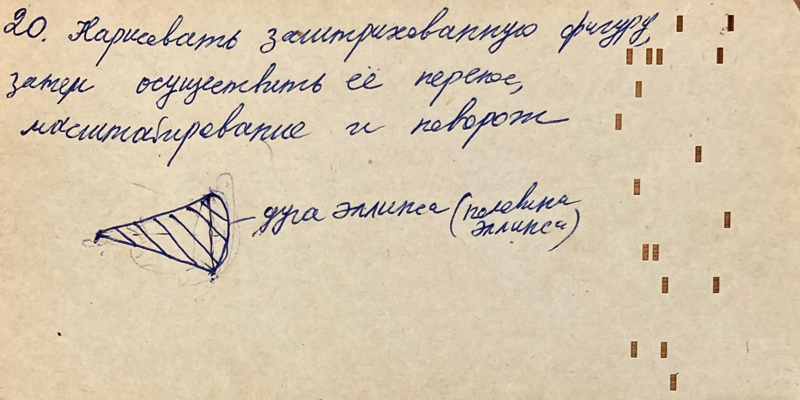 20. Нарисовать заштрихованную фигуру,
затем осуществить её перенос,
масштабирование и поворот
дуга эллипса (половина
эллипса)